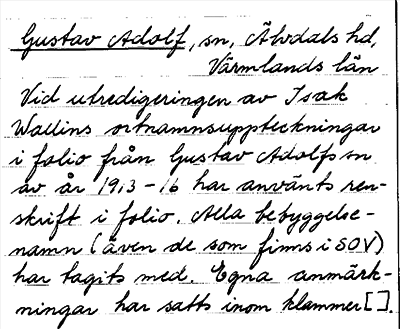 Gustav Adolf, sn, Älvdals hd,
Värmlands län
Vid utredigeringen av Isak
Wallins ortnamnsuppteckningar
i folio från Gustav Adolfs sn
av år 1913-16 har använts ren-
skrift i folio. Alla bebyggelse-
namn (även de som finns i SOV)
har tagits med. Egna anmärk-
ningar har satts inom klammer [ ].